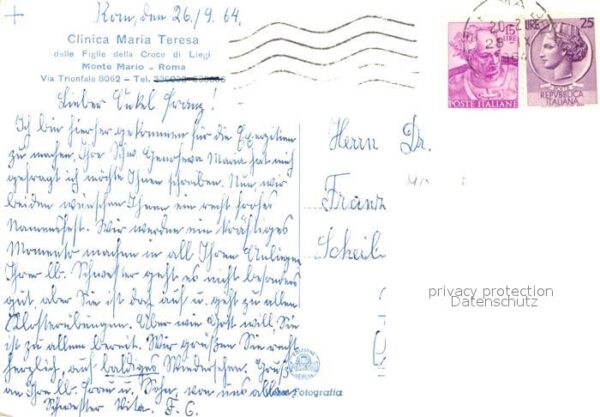 + Rom, den 26./9. 64.
Clinica Maria Teresa
delle Figlie della Croce di Liegi
Monte Mario - Roma
Via Trionfale 8062 - Tel.
Lieber Onkel Franz!
Ich bin hierher gekommen für die Exerzitien
zu machen, Ihre Schw. Genoveva Maria hat mich
gefragt ich möchte Ihnen schreiben. Nun, wir
beiden wünschen Ihnen ein recht frohes
Namensfest. Wir werden ein kräftiges
Momento machen in all Ihren Anliegen
Ihrer lb. Schwester geht es nicht besonders
gut aber Sie ist doch auf u. geht zu allen
Klosterübungen. Aber wie Gott will Sie
ist zu allem bereit. Wir grüßen Sie recht
herzlich, auf baldiges Wiedersehen. Gruß
an Ihre lb. Frau u. Sohn, von uns allen
Schwester Vita. F. C.
Herrn Dr.
Franz
Scheil
15
LIRE
POSTE ITALIANE
LIRE 25
POSTE
REPVBBLICA
ITALIANA
Fotografia
privacy protection
Datenschutz